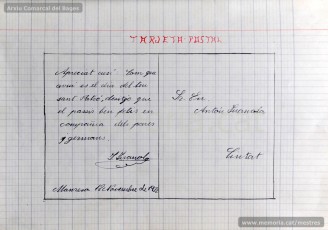 Arxiu Comarcal del Bages
TARJETA POSTAL
Apreciat cosí: Com que
avui es el dia del teu
sant Patró, desitjo que
el passis ben feliç en
companyia dels pares
y germans.
Manresa 12 Novembre de
Sr. En
Antón
Ciutat
www.memoria.cat/mestres